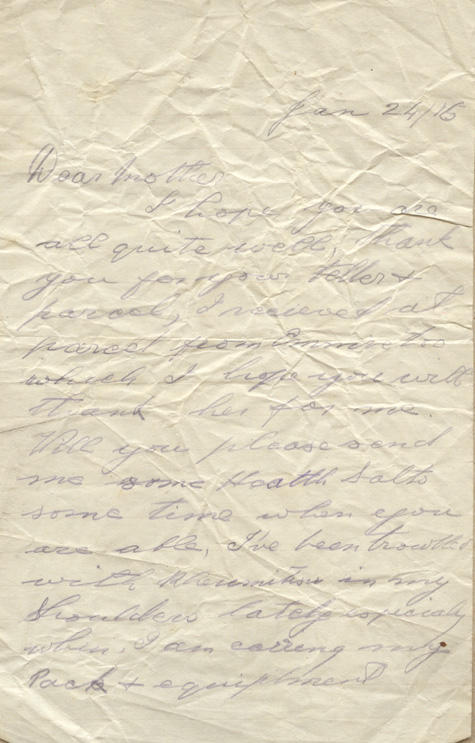 Jan 24/16
Dear Mother
I hope you are
all quite well, Thank
you for your letter +
parcel, I recieved a
parcel from too
which I hope you will
thank her for me.
Will you please send
me some Health Salts
some time when you
are able, I've been troubled
with in my
shoulders lately especialy
when I am carring my
Pack + equiptment